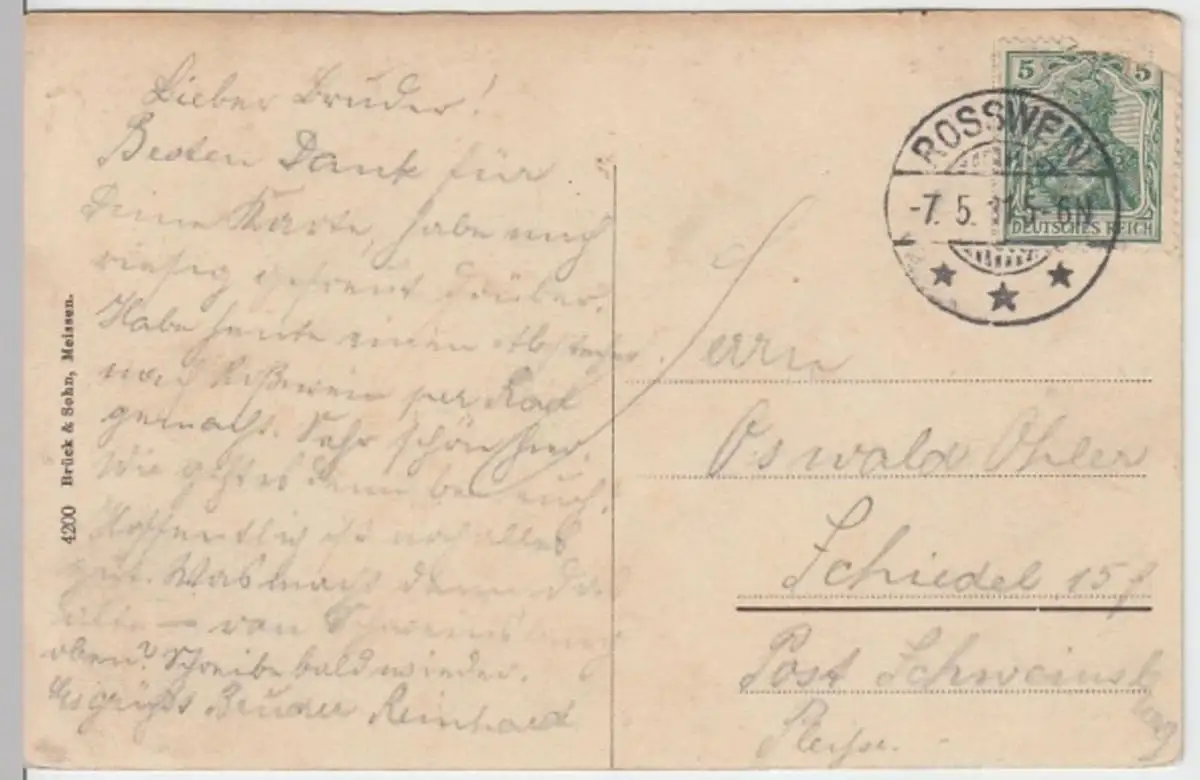 Lieber Bruder!
Besten Dank für
Deine Karte, habe mich
riesig gefreut drüber.
Habe heute einen Abstecher
nach Roßwein per Rad
gemacht. Sehr schön hier.
Wie geht es denn bei euch.
Hoffentlich ist noch alles
gut. Was macht denn die
von
oben? Schreibe bald wieder.
Es grüßt Bruder Reinhard
4200 Brück & Sohn, Meissen.
5 5
DEUTSCHES REICH
ROSSWEIN
-7. 5. 5-6N
Herrn
Oswald Öhler
Schiedel 15
Post Schweinsburg
Pleiße.